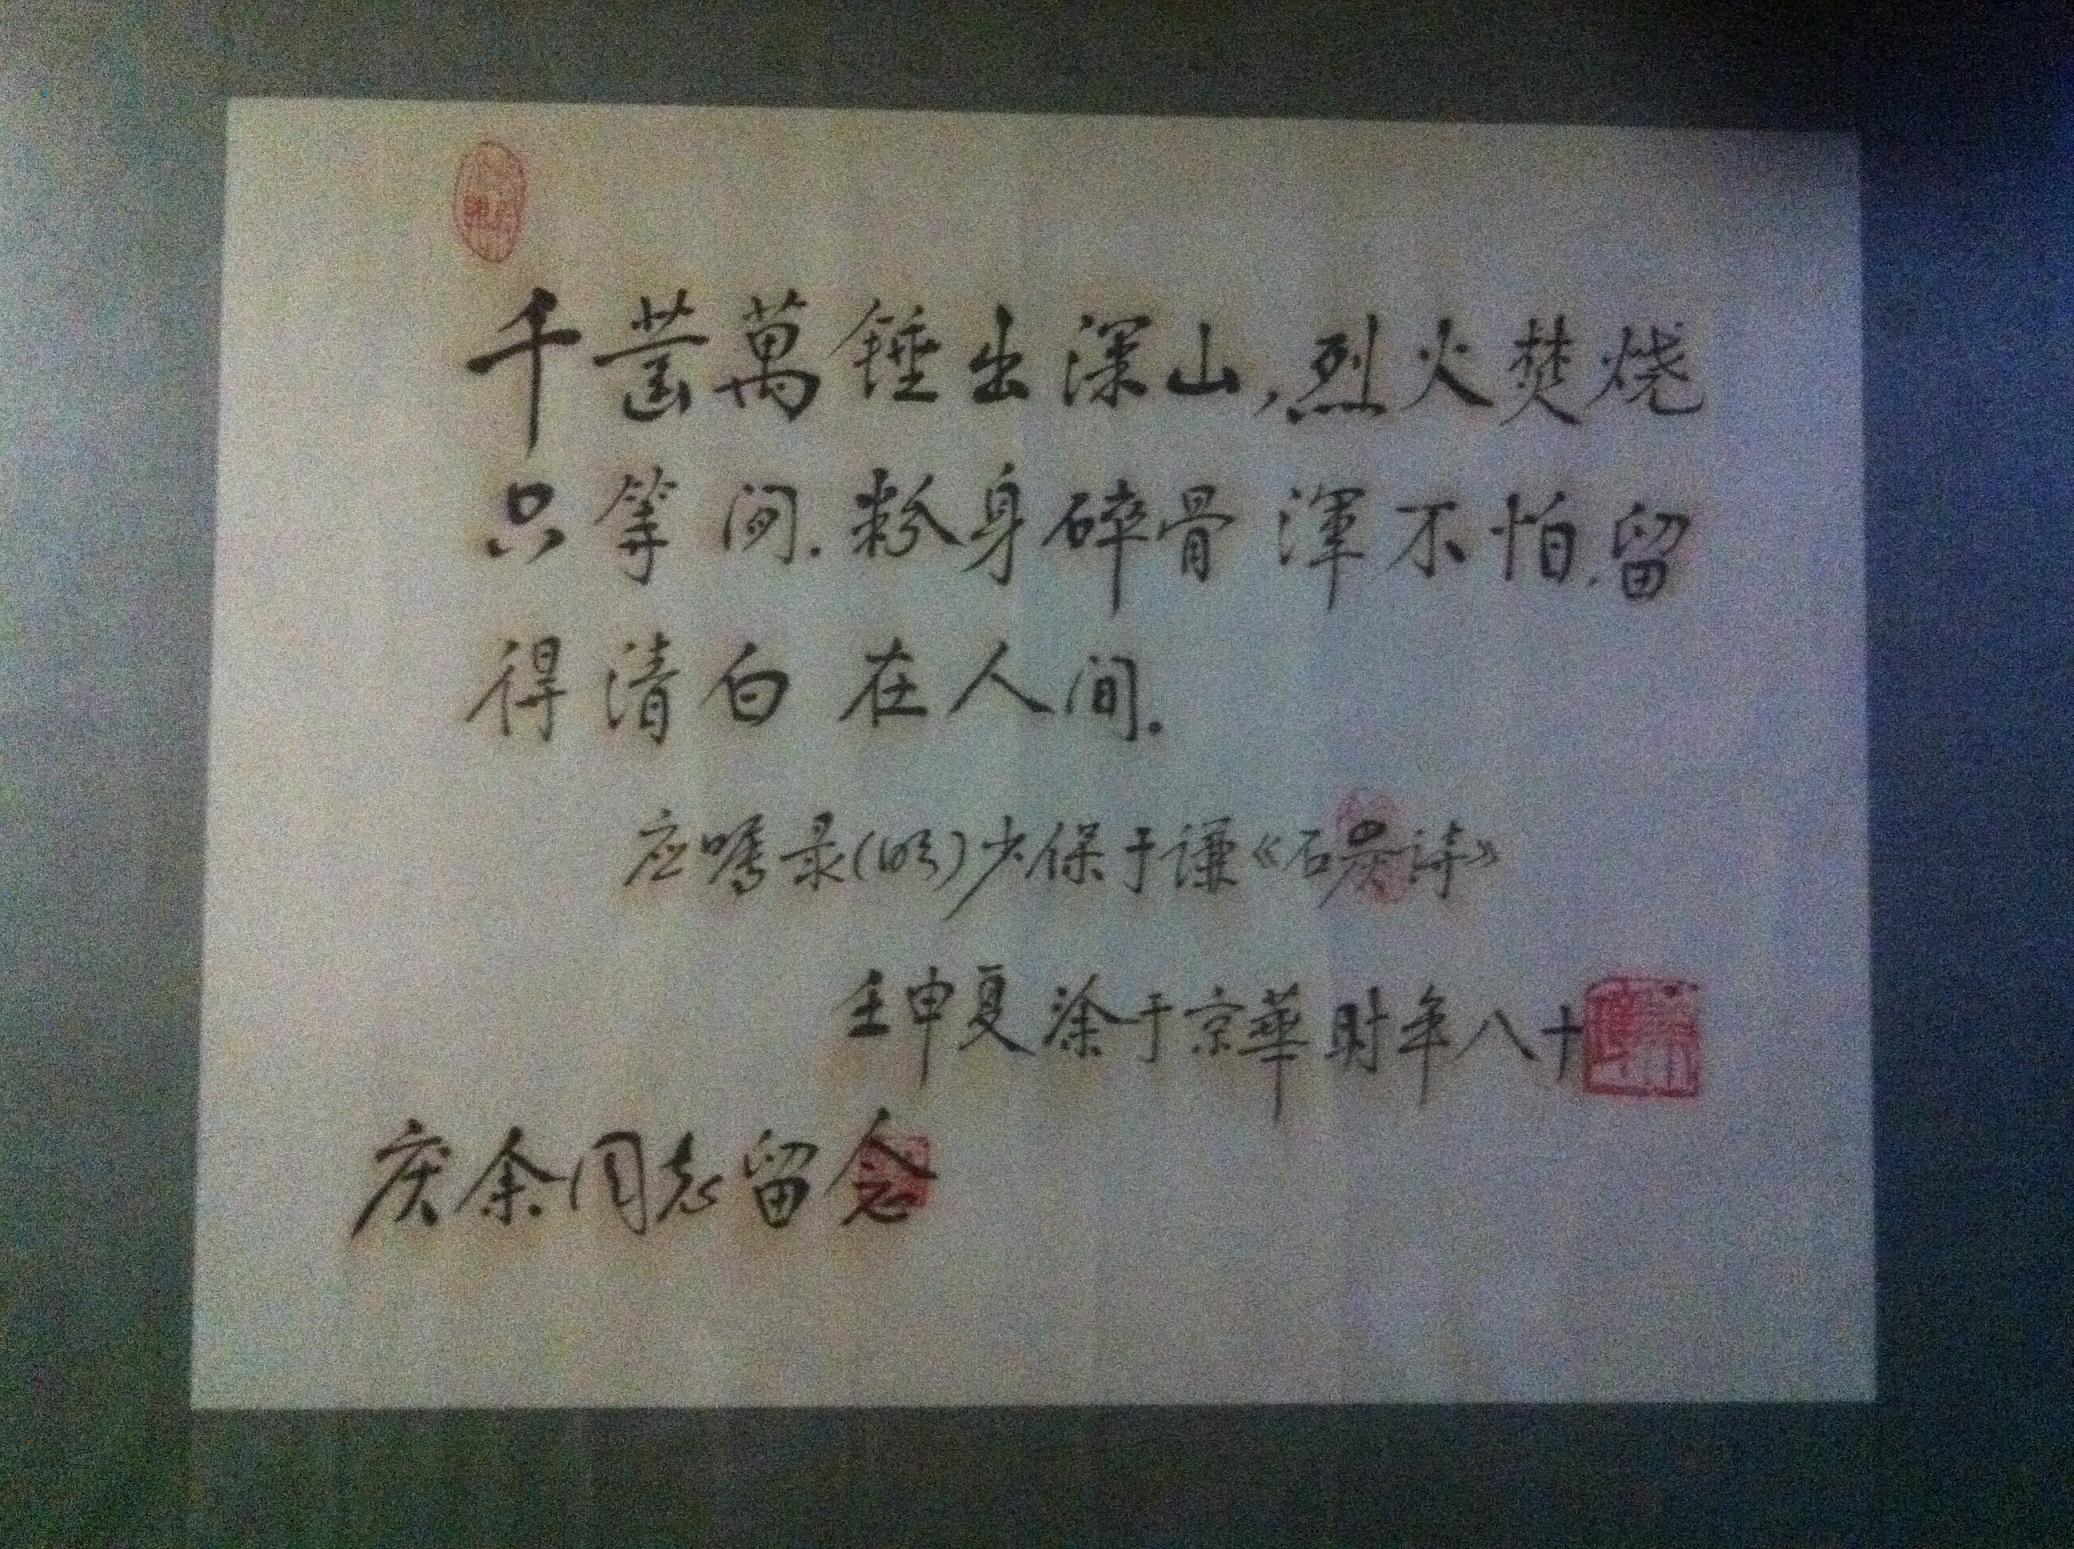 千凿萬锤出深山,烈火焚烧
只等间.粉身碎骨浑不怕,留
得清白在人间.
应嘱录(明)少保于谦《石炭诗》
壬申夏涂于京華时年八十
庆余同志留念